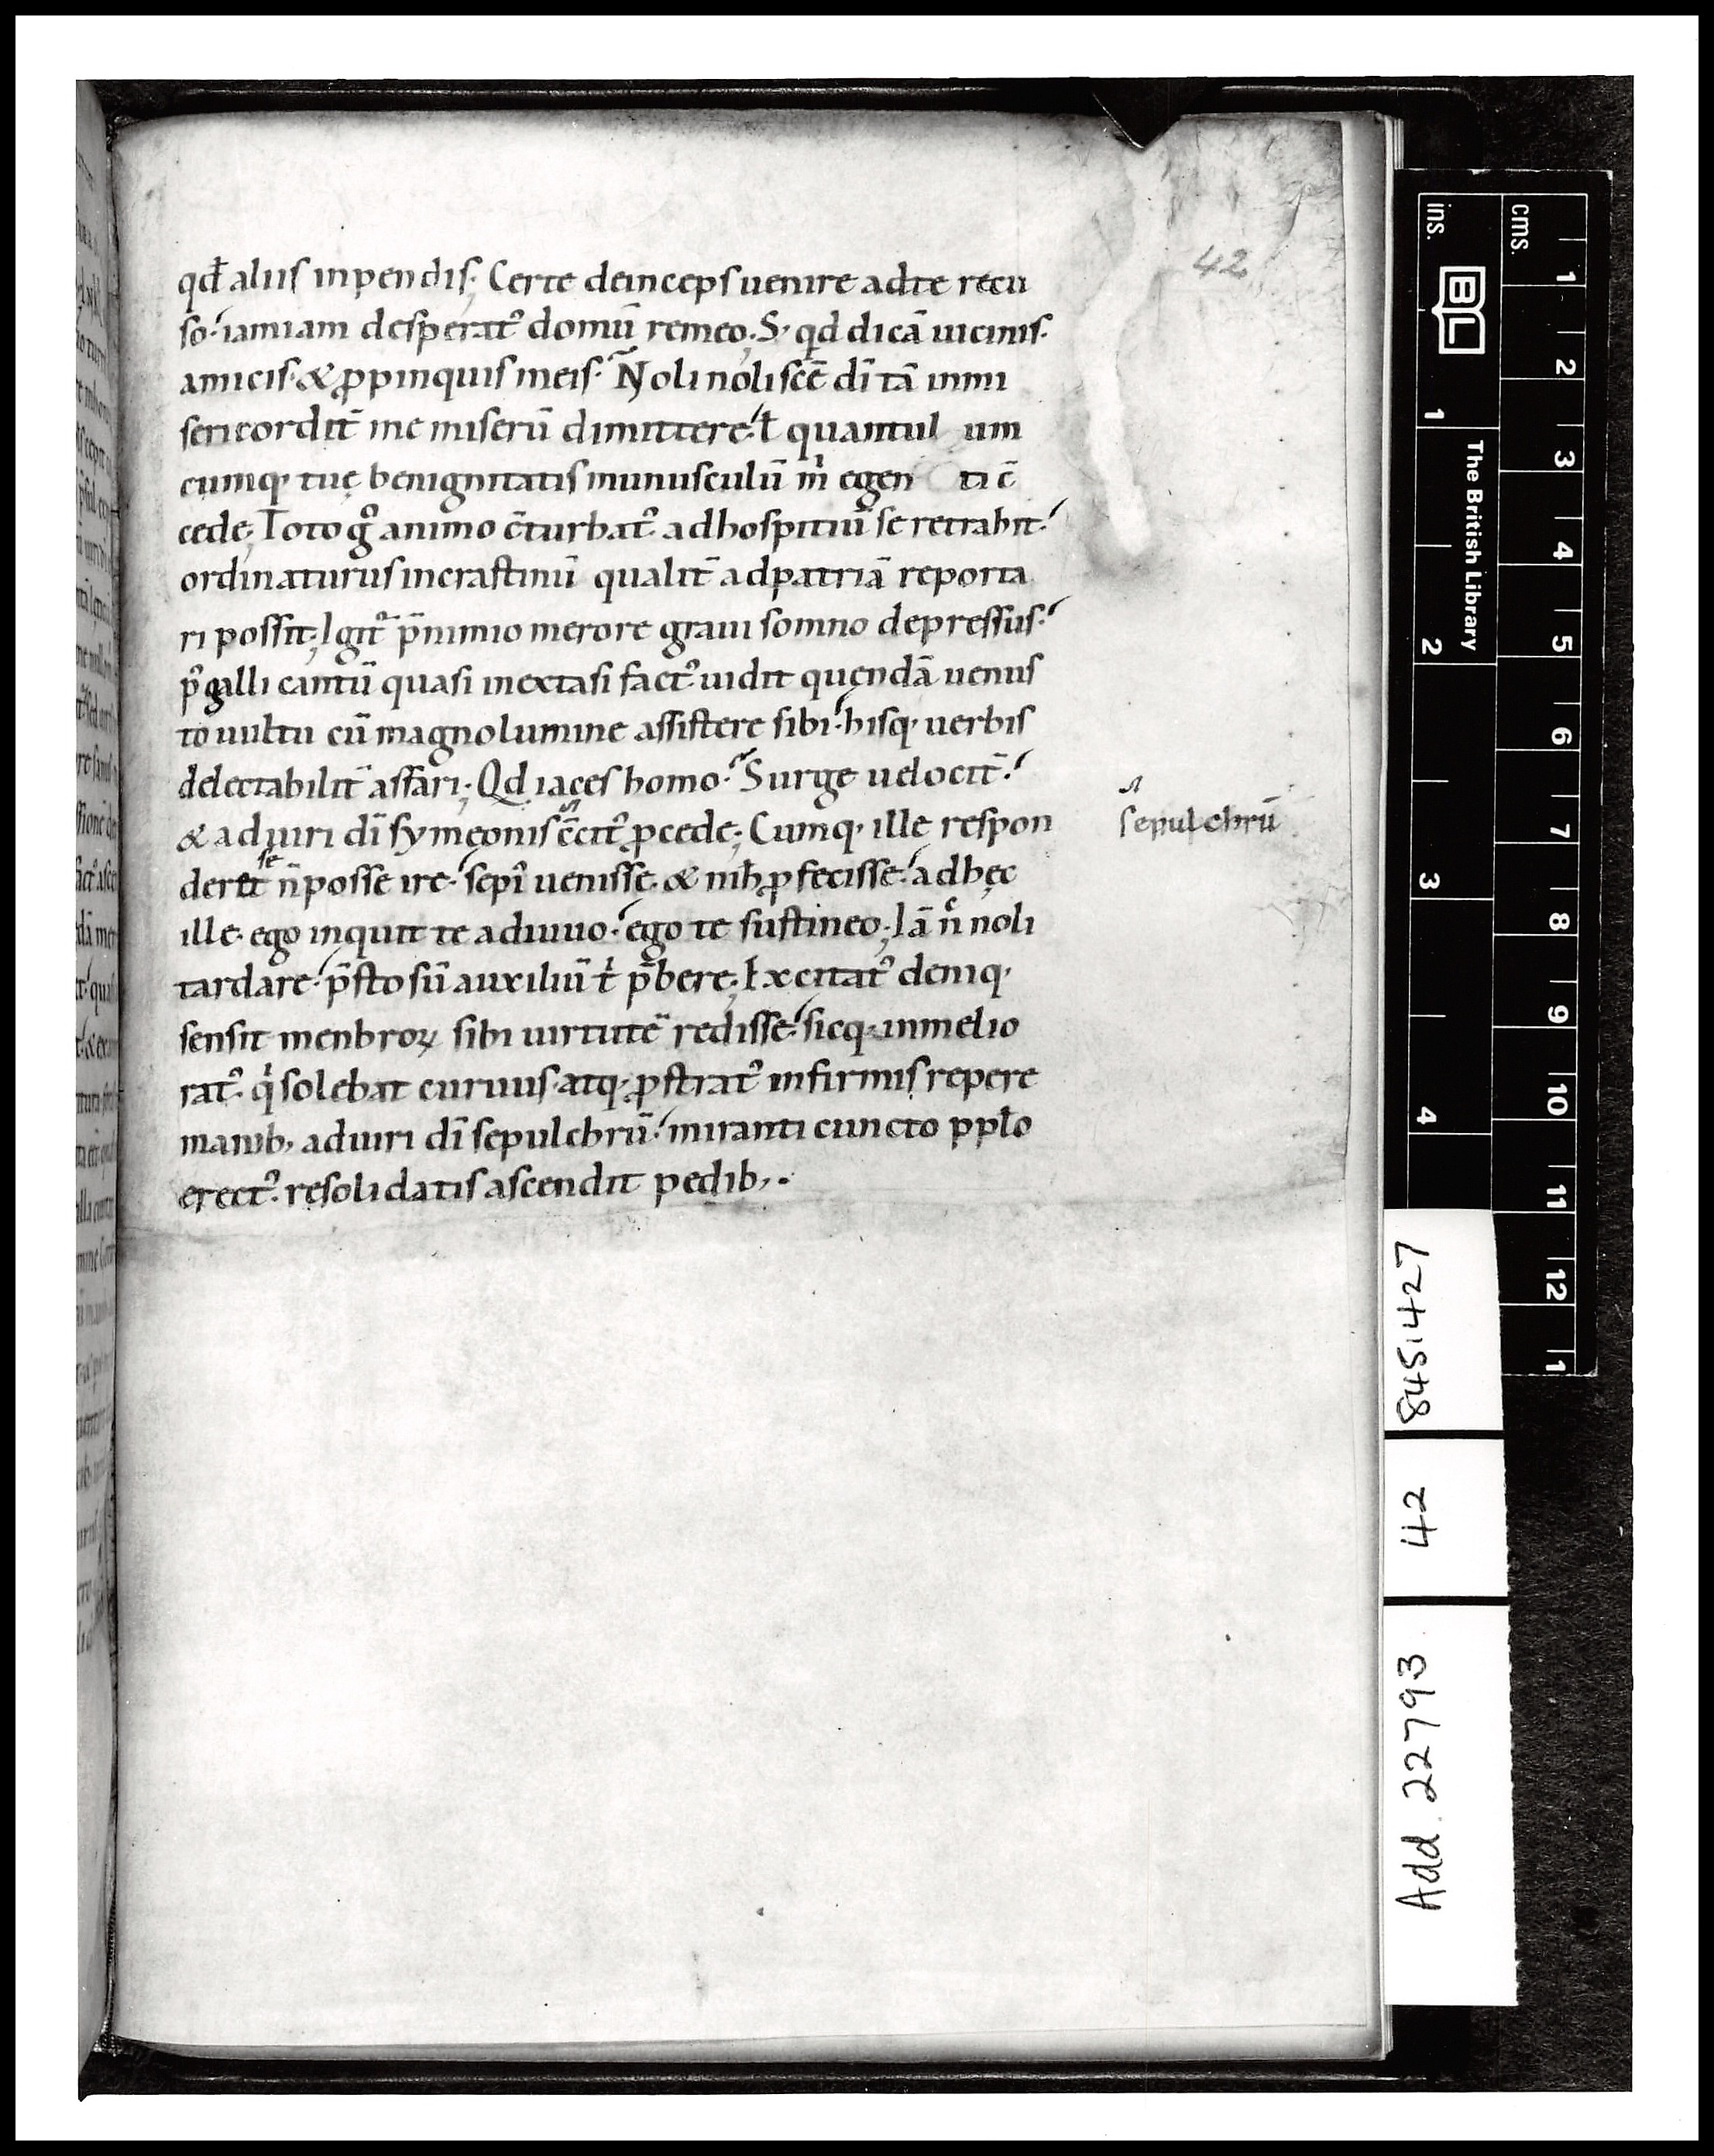 42
qđ aliis inpendis; Certe deinceps uenire ad te recu
so· iamiam desperat᾽ domū remeo; S; qd dicā uicinis·
amicis· & ꝓpinquis meis· Noli noli scē dī tā inmi
sericordit̄ me miserū dimittere· ł quantul um
cumq· tuę benignitatis munusculū m̍ egen ti c̄
cede; Toto gͦ animo c̄turbat᾽ ad hospitiū se retrahit·
ordinaturus in crastinū qualit̄ ad patriā reporta
ri possit; Igit᷑ p̄ nimio merore graui somno depressus·
p᾽ galli cantū quasi in extasi fact᾽ uidit quendā uenus
to uultu cū magno lumine assistere sibi· hisq· uerbis
delectabilit̄ affari; Qd iaces homo· Surge uelocit̄·
& ad uiri dī symeonis c̄cit᾽ ꝓcede; Cumq· ille respon
sepulchrū
se
deret n̄ posse ire· sepī uenisse· & nih̄ ꝓfecisse· ad hęc
ille· ego inquit te adiuuo· ego te sustineo; Iā n̊ noli
tardare· p̄sto sū auxiliū t̍ p̄bere; Excitat᾽ deniq·
sensit menbroꝝ sibi uirtutē redisse· sicq· inmelio
rat᾽ q̍ solebat curuus· atq· ꝓstrat᾽ infirmis repere
manib; ad uiri dī sepulchrū· miranti cuncto pplo
erect᾽ resolidatis ascendit pedib;·
cms.
ins.
BL
The British Library
1
2
3
4
5
6
7
8
9
10
11
12
1
1
2
3
4
845.427
42
Add. 22793